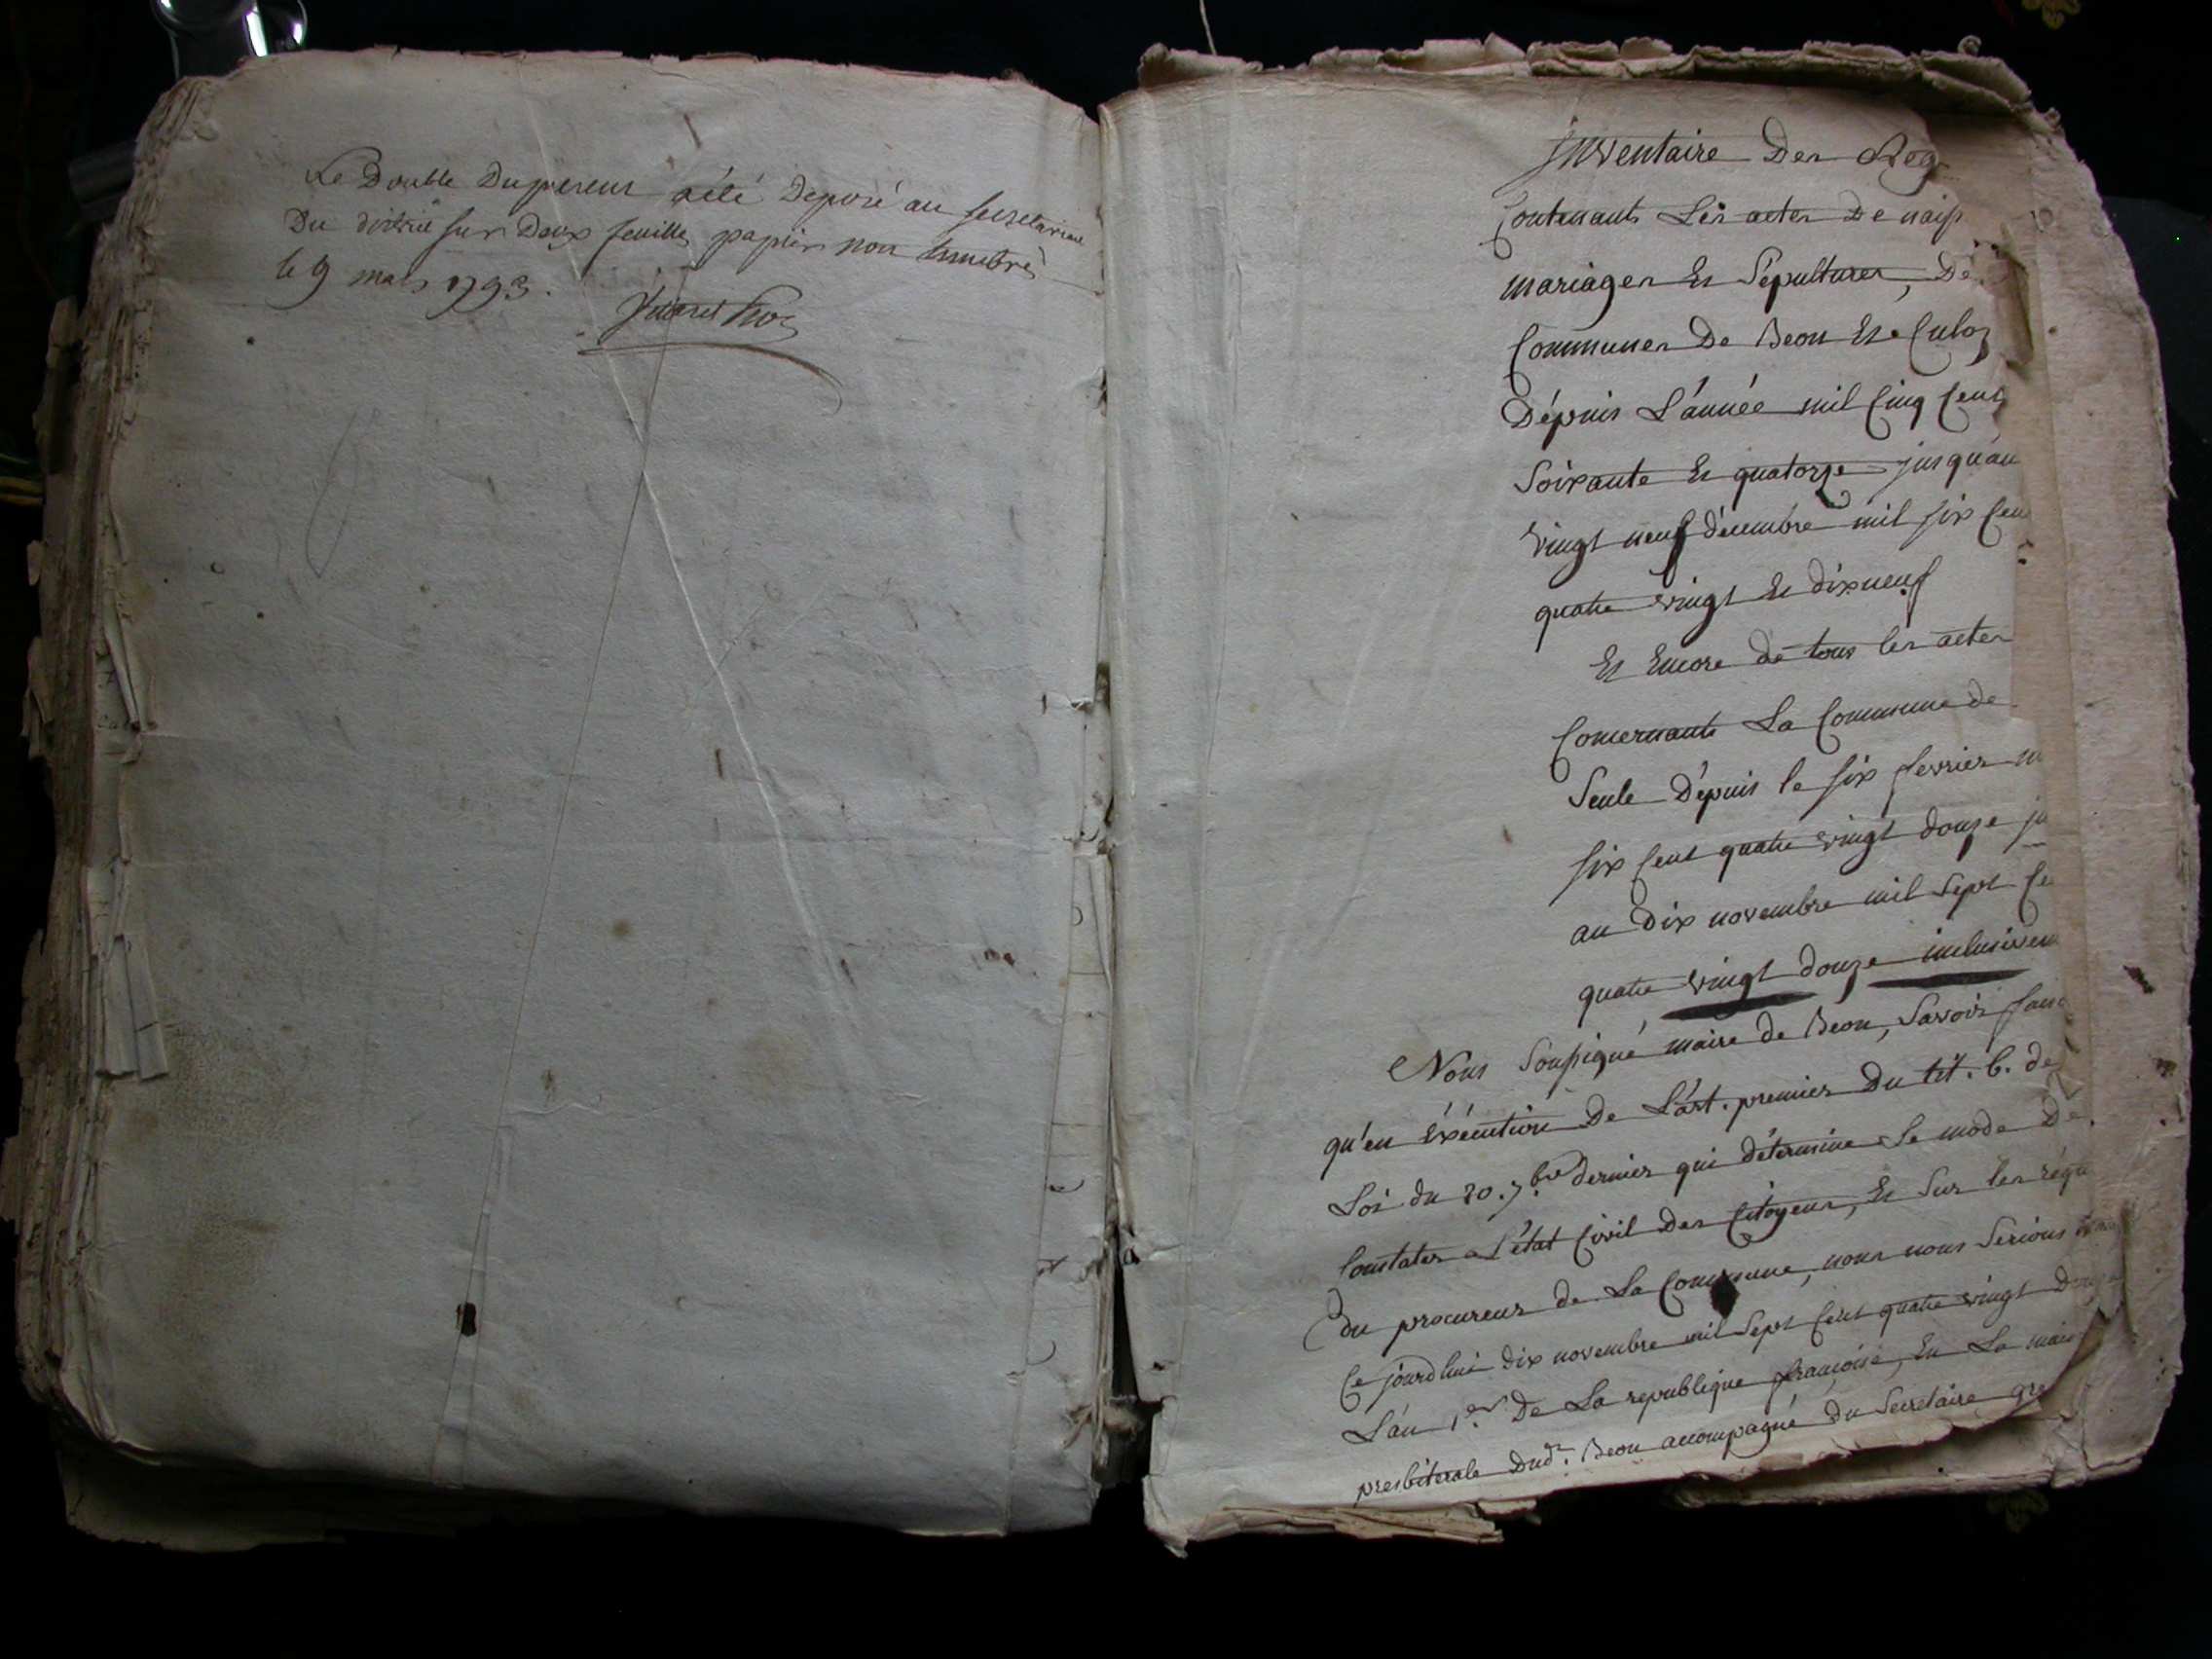 Le Double Du present a été Deposé au secretariat
Du district sur Deux feuilles papier non timbrés
le 9 mars 1793.
Inventaire Des Reg
Contenants Les actes De naiss
mariages Et Sépultures, De
Communes De Beon Et Culoz
Dépuis L'année mil Cinq Cent
Soixante Et quatorze jusqu'au
vingt neuf décembre mil six Cen
quatre vingt Et dixneuf
Et Encore de tous les actes
Concernants La Commune de
Seule Dépuis le six fevrier m
six Cent quatre vingt douze ju
au Dix novembre mil Sept Ce
quatre vingt douze inclusivem
Nous Soussigné maire de Beon, Savoir fais
qu'en Exécution De L'art. premier Du tit. 6. de
Loi du 20. 7.bre dernier qui détermine Le mode De
Constater L'état Civil Des Citoyens, Et Sur les réqu
Du procureur de La Commune, nous nous Serions
Ce jourdhui dix novembre mil Sept Cent quatre vingt Douze
L'an 1.er De La republique françoise, En La mais
presbiterale Dud.t Beon accompagné du Secretaire gre